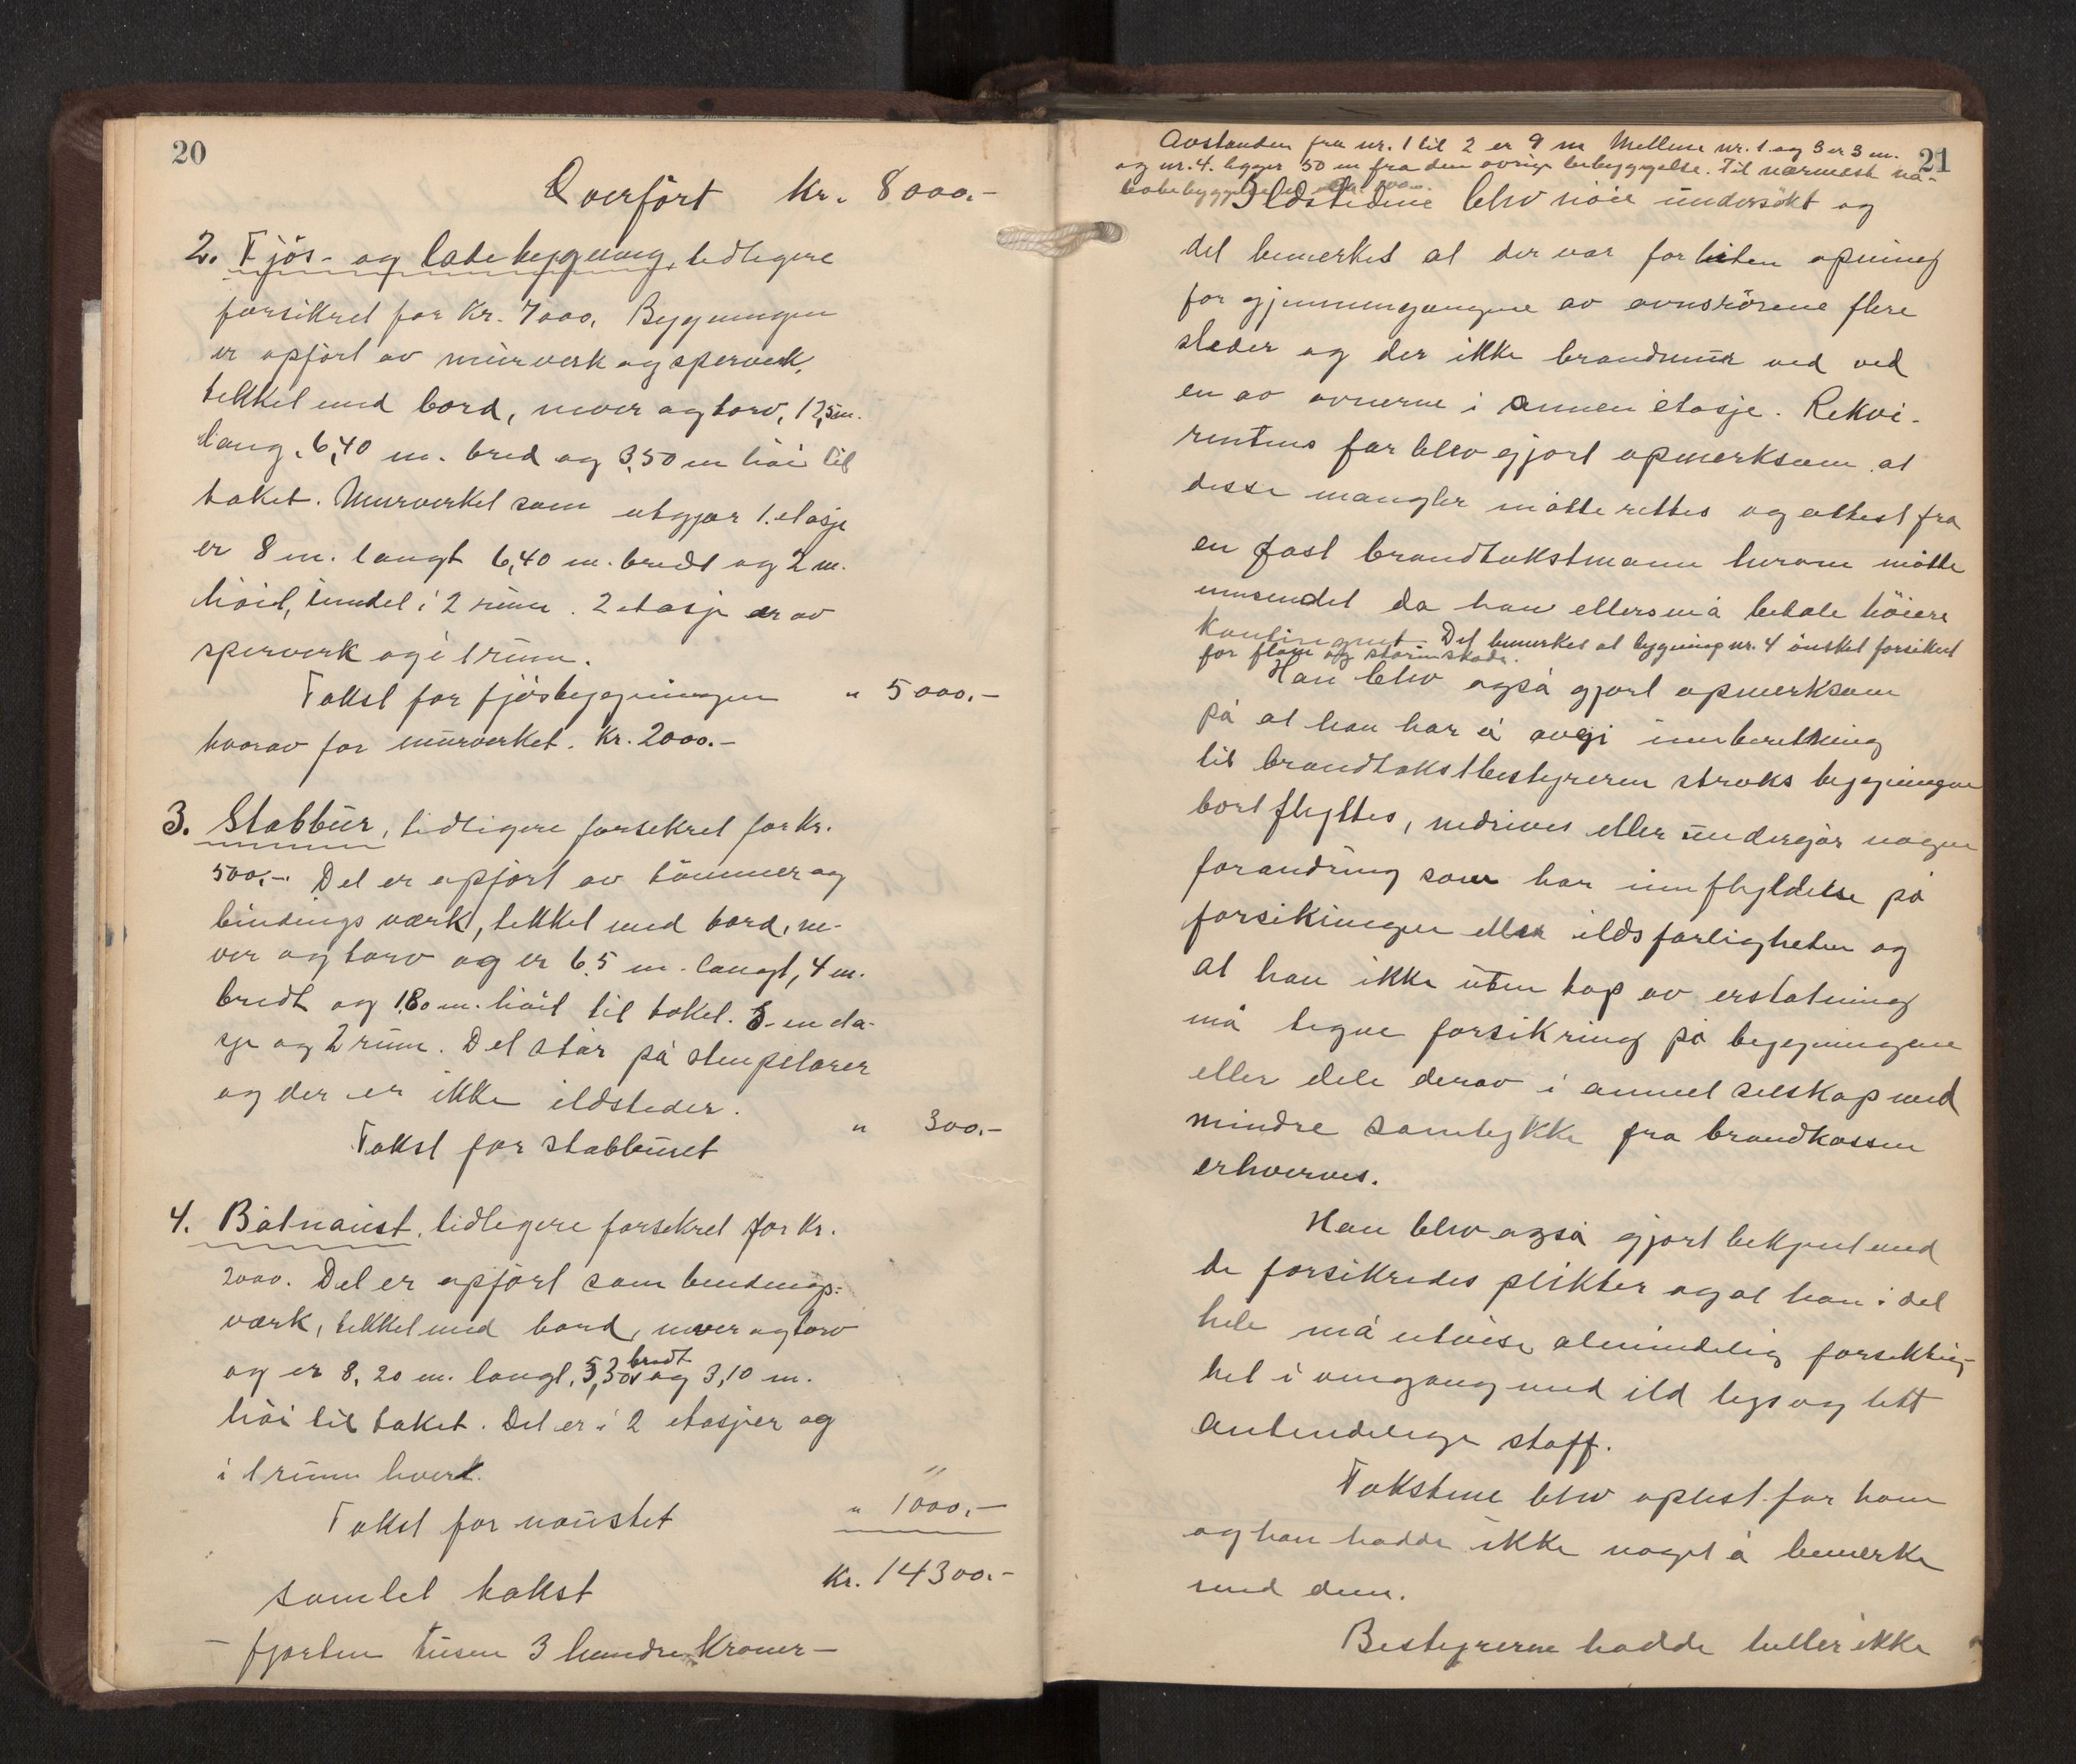 20
Overfört Kr. 8000.-
2. Fjös- og ladebygning, tidligere
forsikret for Kr. 7000. Bygningen
er opfört av murverk og sperverk,
tekket med bord, never og torv, 12,5 m.
lang, 6,40 m. bred og 3,50 m höi til
taket. Murverket som utgjør 1. etasje
er 8 m. langt 6,40 m. bredt og 2 m.
höit, inndel i 2 rum. 2 etasje er av
sperverk og i 1 rum.
Takst for fjösbygningen " 5000.-
hvorav for murverket. Kr. 2000.-
3. Stabbur, tidligere forsikret for Kr.
500.- Det er opfört av tömmer og
bindingsværk, tekket med bord, ne-
ver og torv og er 6,5 m. langt, 4 m.
bredt og 1,80 m. höit til taket. I en eta-
sje og 2 rum. Det står på stenpilarer
og der er ikke ildsteder.
Takst for stabburet " 300.-
4. Båtnaust, tidligere forsikret for Kr.
2000. Det er opfört som bindings-
værk, tekket med bord, never og torv
og er 8,20 m. langt, 5,30 bredt og 3,10 m.
höi til taket. Det er i 2 etasjer og
i 1 rum hvert.
Takst for naustet " 1000.-
samlet takst Kr. 14300.-
- fjorten tusen 3 hundre Kroner -
21
Avstanden fra nr. 1 til 2 er 9 m Mellem nr. 1 og 3 er 3 m.
og nr. 4. ligger 50 m fra den övrige bebyggelse. Til nærmeste na-
bobebyggelse er
Ildstedene blev nöie undersökt og
det bemerkes at der var for liten åpning
for gjennemgangene av ovnsrörene flere
steder og der ikke brandmur ved ved
en av ovnerne i annen etasje. Rekvi-
rentens far blev gjort opmerksom at
disse mangler måtte rettes og attest fra
en fast brandtakstmann herom måtte
innsendes da han ellers må betale höiere
Kontingent. Det bemerkes at bygning nr. 4 önsket forsikret
for flom og stormskade.
Han blev også gjort opmerksom
på at han har å avgi innberetning
til brandtakstbestyreren straks bygningene
bortflyttes, nedrives eller undergår nogen
forandring som har innflydelse på
forsikringen eller ildsfarligheten og
at han ikke uten tap av erstatning
må tegne forsikring på bygningene
eller dele derav i annet selskap med
mindre samtykke fra brandkassen
erhverves.
Han blev også gjort bekjent med
de forsikredes plikter og at han i det
hele må utvise almindelig forsiktig-
het i omgang med ild lys og lett
antendelige stoff.
Takstene blev oplest for ham
og han hadde ikke noget å bemerke
med dem.
Bestyrerne hadde heller ikke